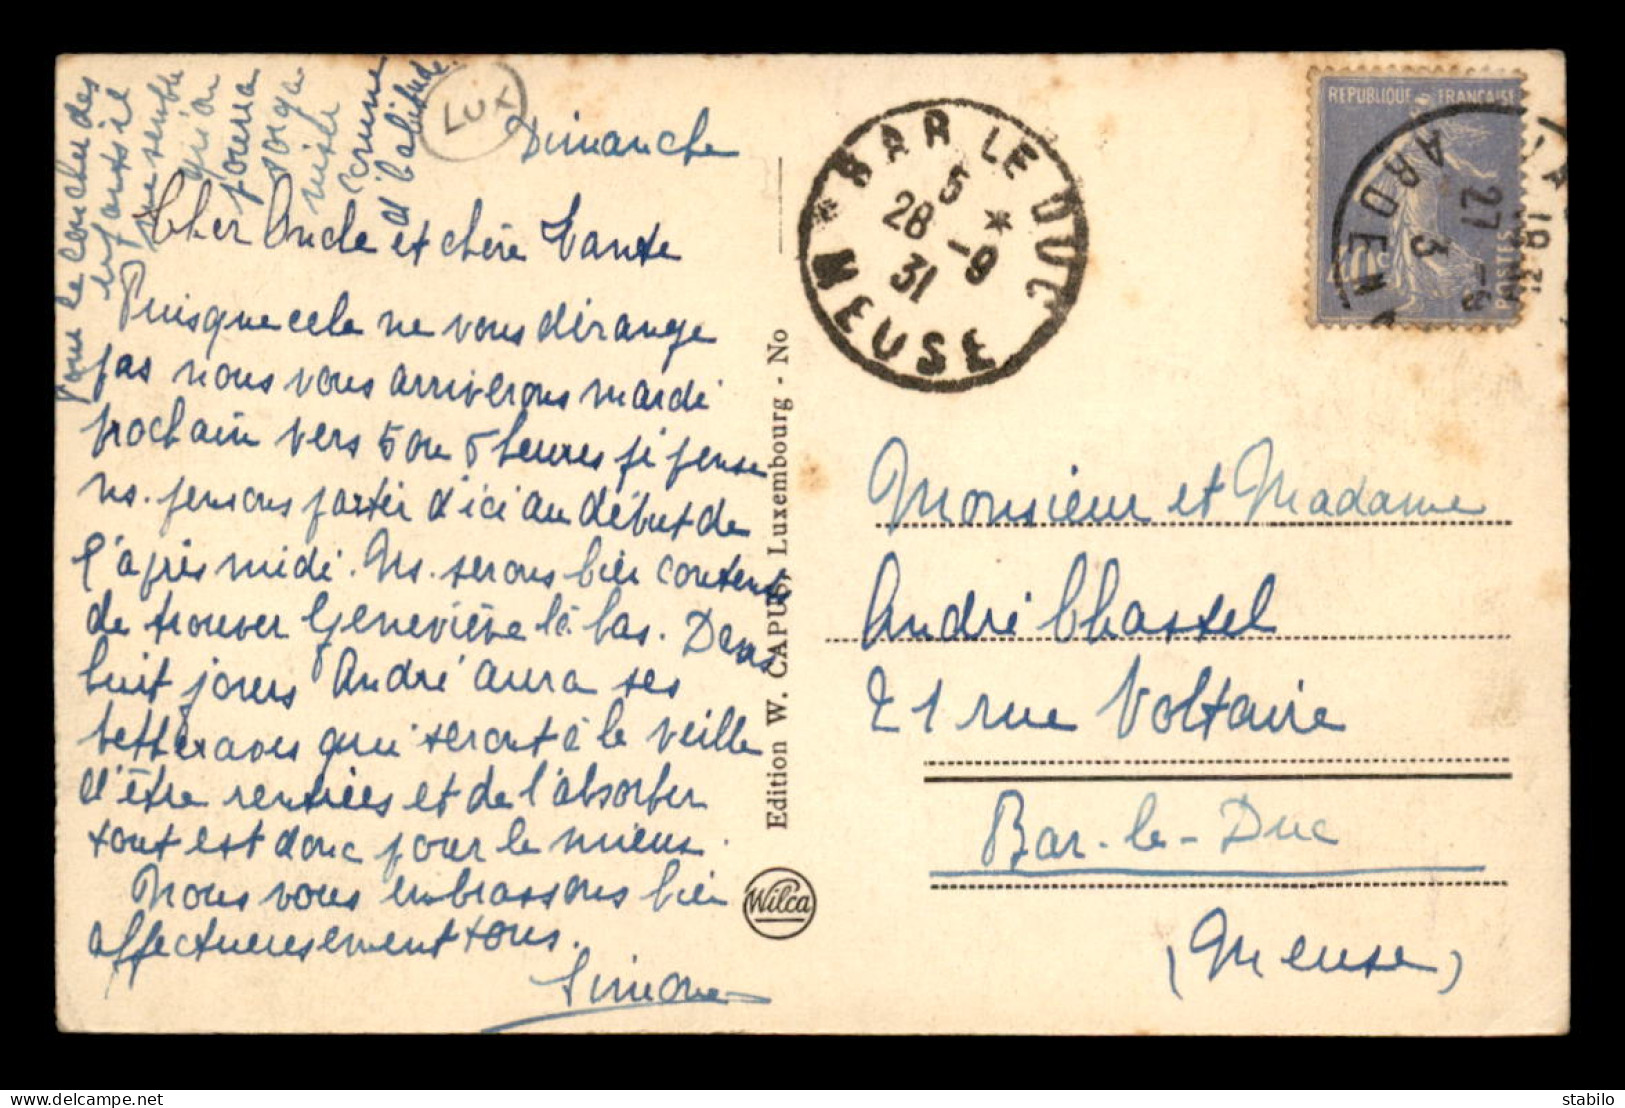 Pour le coucher des
enfants il
me semble
qu'on
pourra
s'orga
niser
comme
d'habitude.
LUX
Dimanche
Cher Oncle et chère Tante
Puisque cela ne vous dérange
pas nous vous arriverons mardi
prochain vers 5 ou 6 heures je pense
ns. pensons partir d'ici au début de
l'après midi. Ns. serons bien contents
de trouver Geneviève là bas. Dans
huit jours André aura ses
betteraves qui seront à la veille
d'être rentrées et de l'absorber
tout est donc pour le mieux.
Nous vous embrassons bien
affectueusement tous.
Simone
Edition W. CAPUS, Luxembourg - No
Wilca
BAR LE DUC
5 *
28 -9
31
* MEUSE
REPUBLIQUE FRANÇAISE
POSTES
ARDEN
27 -9
3
Monsieur et Madame
André Chastel
21 rue Voltaire
Bar-le-Duc
(Meuse)
stabilo